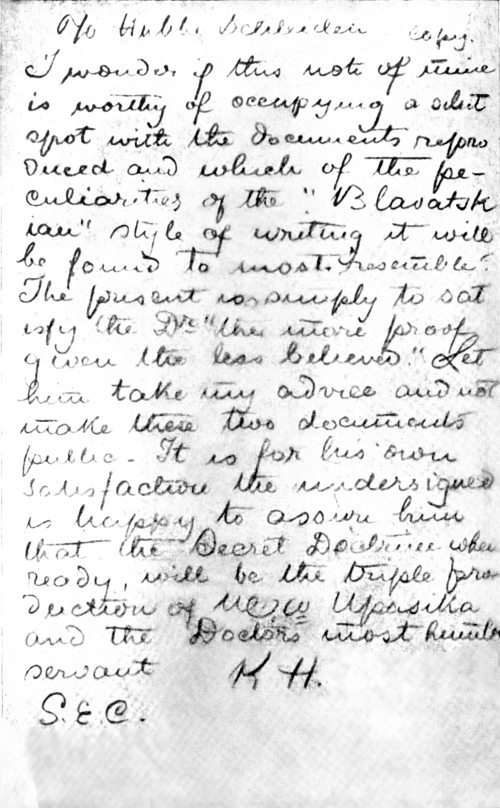 To Hubbe Schleiden copy.
I wonder if this note of mine
is worthy of occupying a select
spot with the documents repro
duced and which of the pe-
culiarities of the "Blavatsk
ian" style of writing it will
be found to most resemble?
The present is simply to sat
isfy the Dr. "the more proof
given the less believed." Let
him take my advice and not
make these two documents
public - It is for his own
satisfaction the undersigned
is happy to assure him
that the Secret Doctrine when
ready, will be the triple pro
duction of Upasika
and the Doctors most humble
servant K H.
S.E.C.